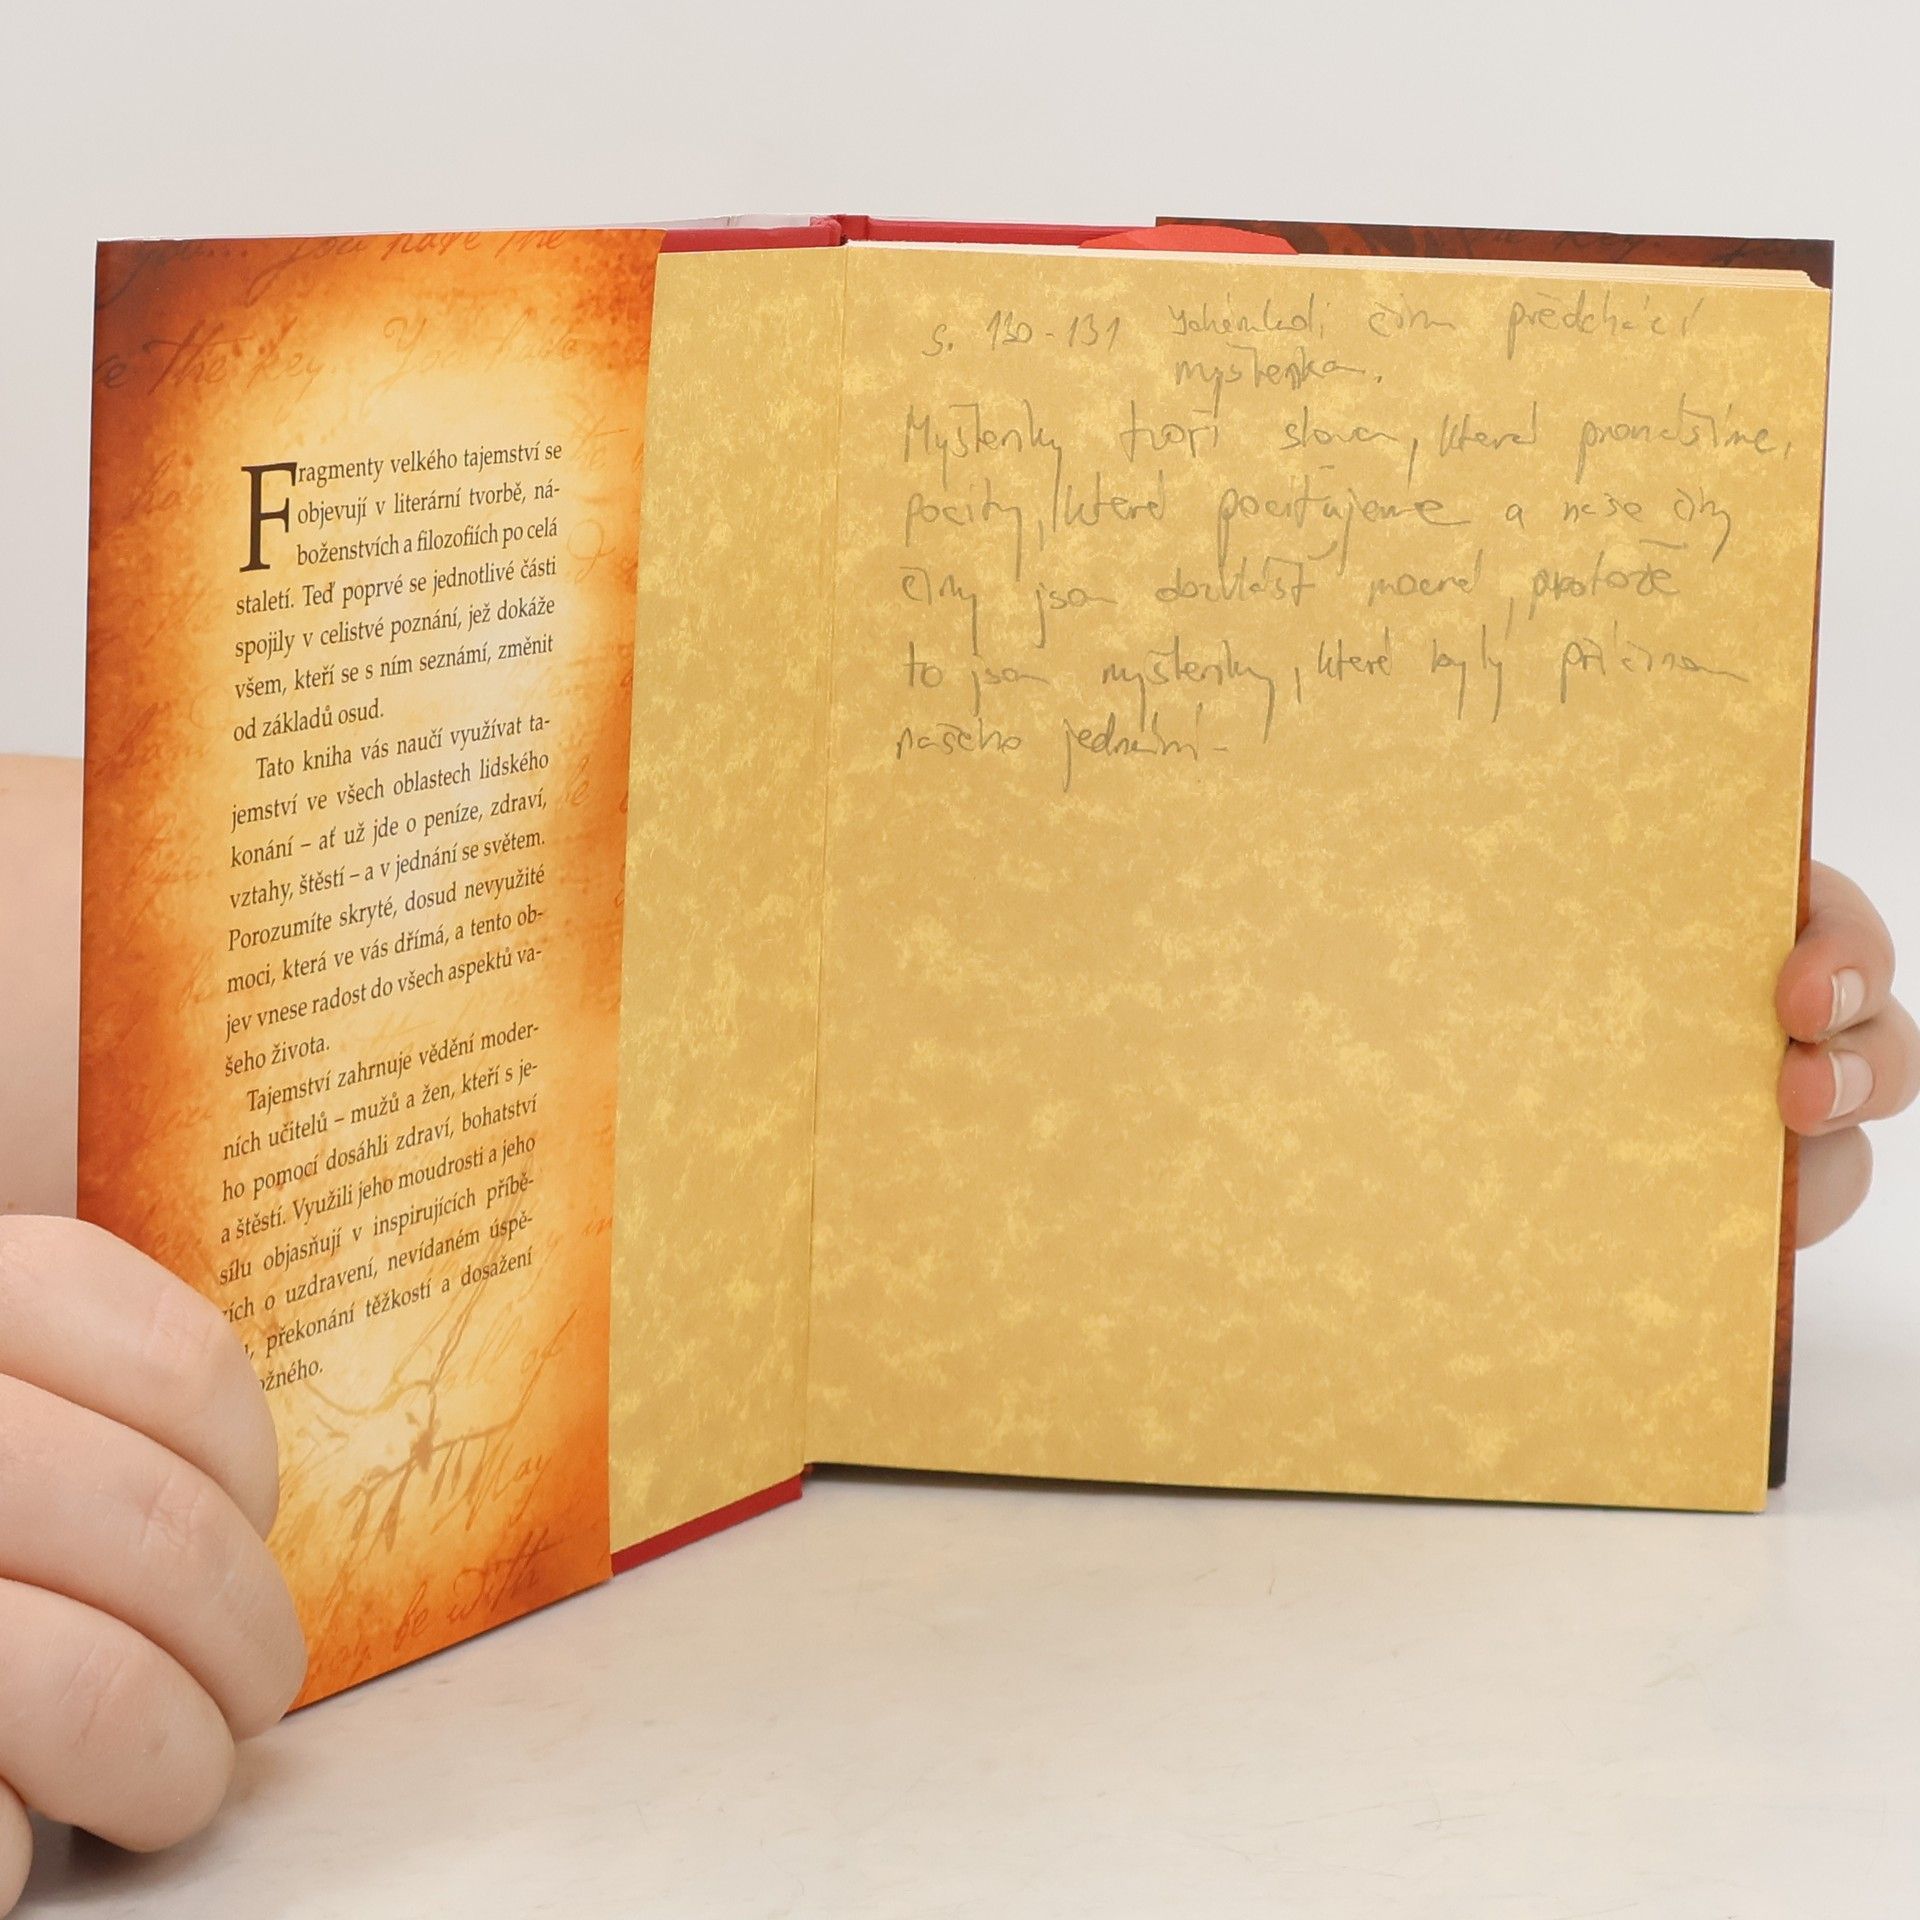 you have the
the key. You have
Fragmenty velkého tajemství se
objevují v literární tvorbě, ná-
boženstvích a filozofiích po celá
staletí. Teď poprvé se jednotlivé části
spojily v celistvé poznání, jež dokáže
všem, kteří se s ním seznámí, změnit
od základů osud.
Tato kniha vás naučí využívat ta-
jemství ve všech oblastech lidského
konání – ať už jde o peníze, zdraví,
vztahy, štěstí – a v jednání se světem.
Porozumíte skryté, dosud nevyužité
moci, která ve vás dřímá, a tento ob-
jev vnese radost do všech aspektů va-
šeho života.
Tajemství zahrnuje vědění moder-
ních učitelů – mužů a žen, kteří s je-
ho pomocí dosáhli zdraví, bohatství
a štěstí. Využili jeho moudrosti a jeho
sílu objasňují v inspirujících příbě-
zích o uzdravení, nevídaném úspě-
překonání těžkostí a dosažení
ožného.
all of
May
be with
s. 130-131 činu předchází
myšlenka.
Myšlenky tvoří slova, která pronášíme,
pocity, které pociťujeme a naše činy
činy jsou obzvlášť mocné, protože
to jsou myšlenky, které byly příčinou
našeho jednání.